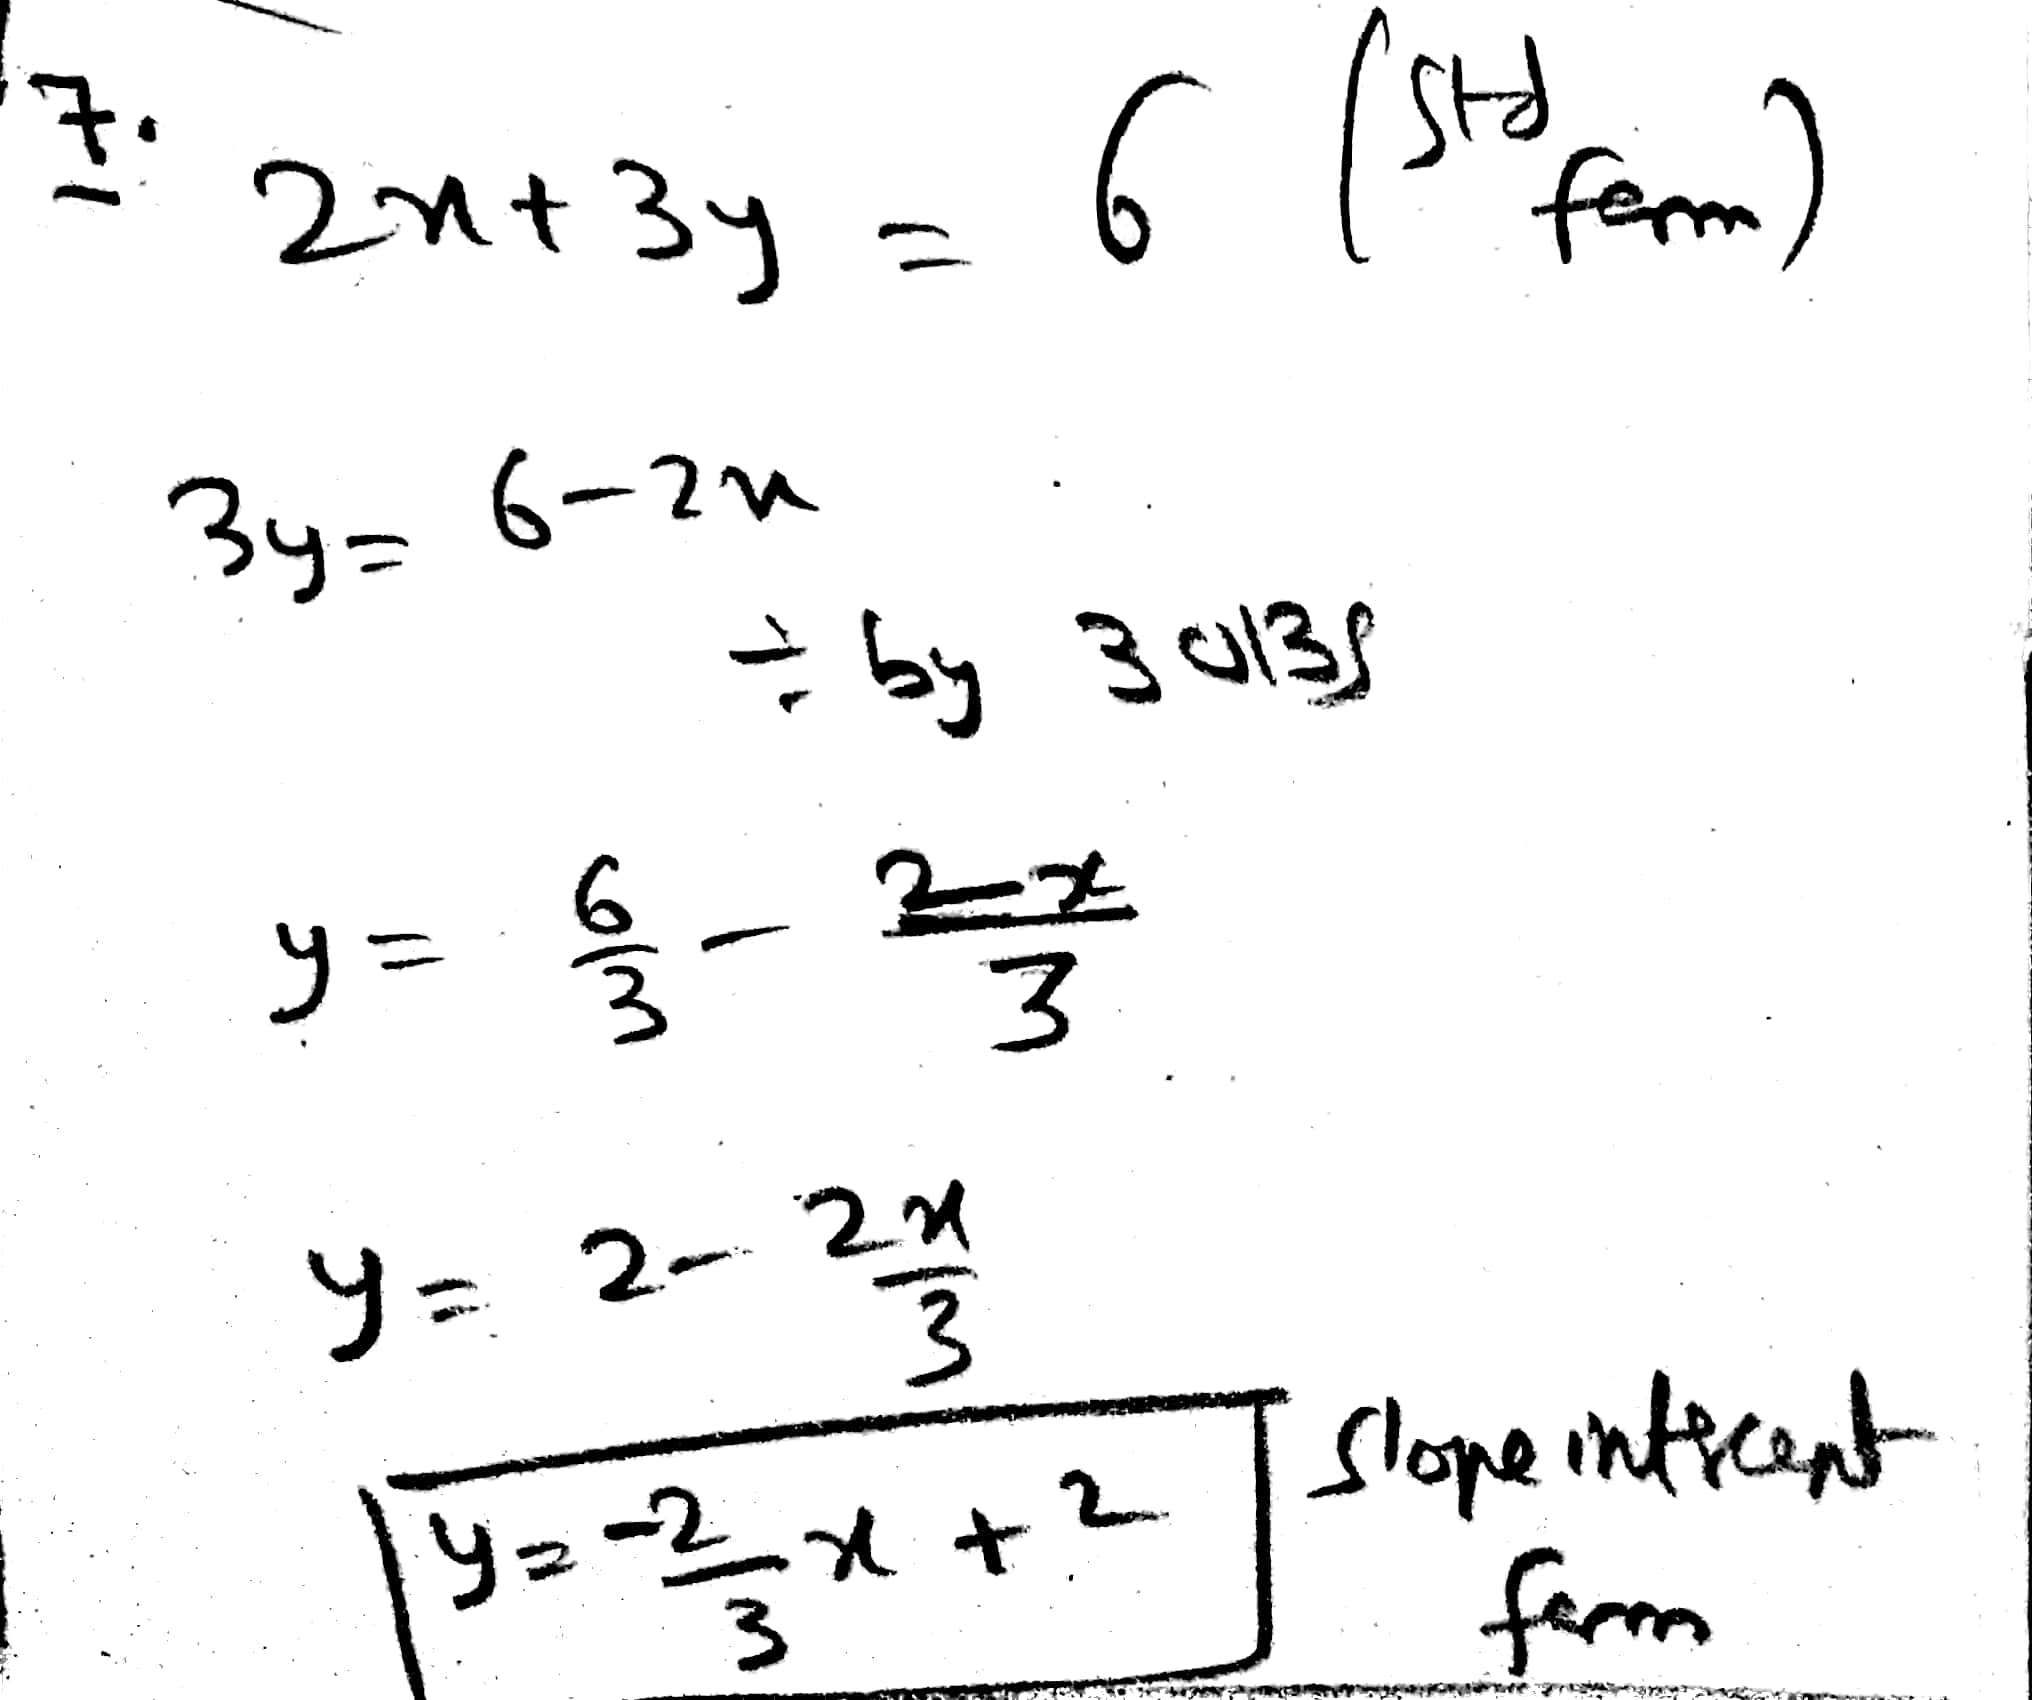 7. 2x + 3y = 6 (Std form)
3y = 6 - 2x
÷ by 3 O/B/S
y = 6/3 - 2x/3
y = 2 - 2x/3
y = -2/3 x + 2 slope intercept
form